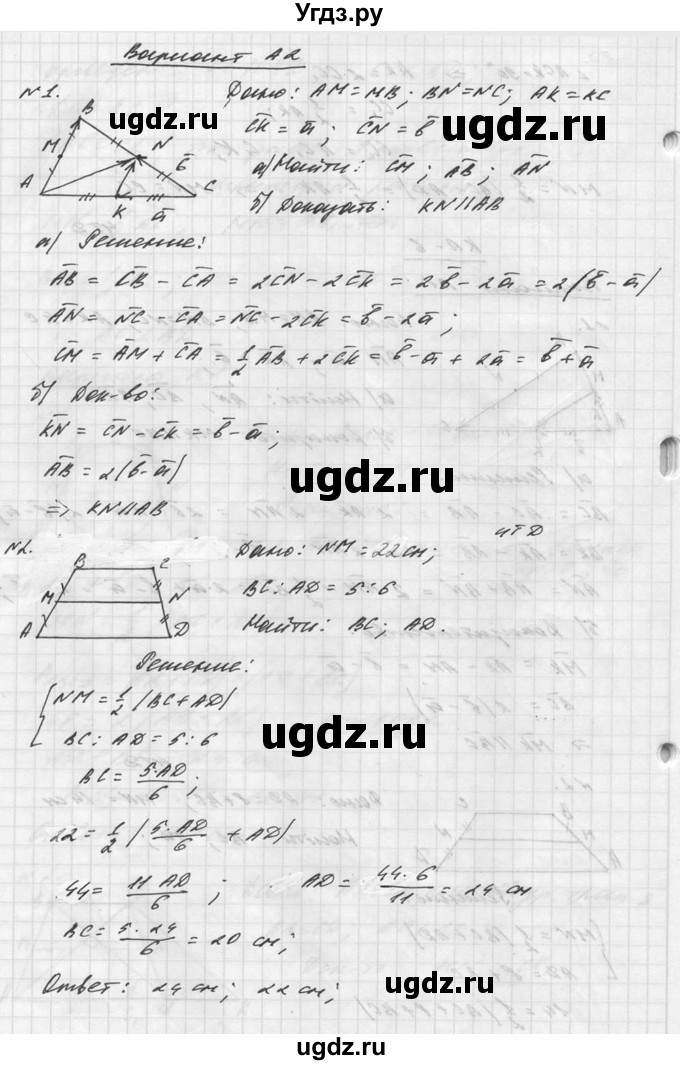 Угдз.ру
Вариант А2
№1.
Дано: AM = MB; BN = NC; AK = KC
C̅K̅ = a̅; C̅N̅ = b̅
а) Найти: C̅M̅; A̅B̅; A̅N̅
б) Доказать: KN∥AB
B
M
N
b̅
A
K
a̅
C
ugdz.ru
ugdz.ru
а) Решение:
A̅B̅ = C̅B̅ − C̅A̅ = 2C̅N̅ − 2C̅K̅ = 2b̅ − 2a̅ = 2(b̅ − a̅)
A̅N̅ = N̅C̅ − C̅A̅ = N̅C̅ − 2C̅K̅ = b̅ − 2a̅;
C̅M̅ = A̅M̅ + C̅A̅ = 1/2 A̅B̅ + 2C̅K̅ = b̅ − a̅ + 2a̅ = b̅ + a̅
б) Док-во:
K̅N̅ = C̅N̅ − C̅K̅ = b̅ − a̅;
A̅B̅ = 2(b̅ − a̅)
ugdz.ru
=> KN∥AB
чтд
№2.
Дано: NM = 22см;
BC : AD = 5 : 6
Найти: BC; AD.
B
C
M
N
A
D
Решение:
NM = 1/2 (BC + AD)
BC : AD = 5 : 6
ugdz.ru
BC = 5·AD/6;
22 = 1/2 (5·AD/6 + AD)
44 = 11 AD/6; AD = 44·6/11 = 24 см
BC = 5·24/6 = 20 см;
ugdz.ru
ugdz.ru
Ответ: 24 см; 22 см;
ugdz.ru